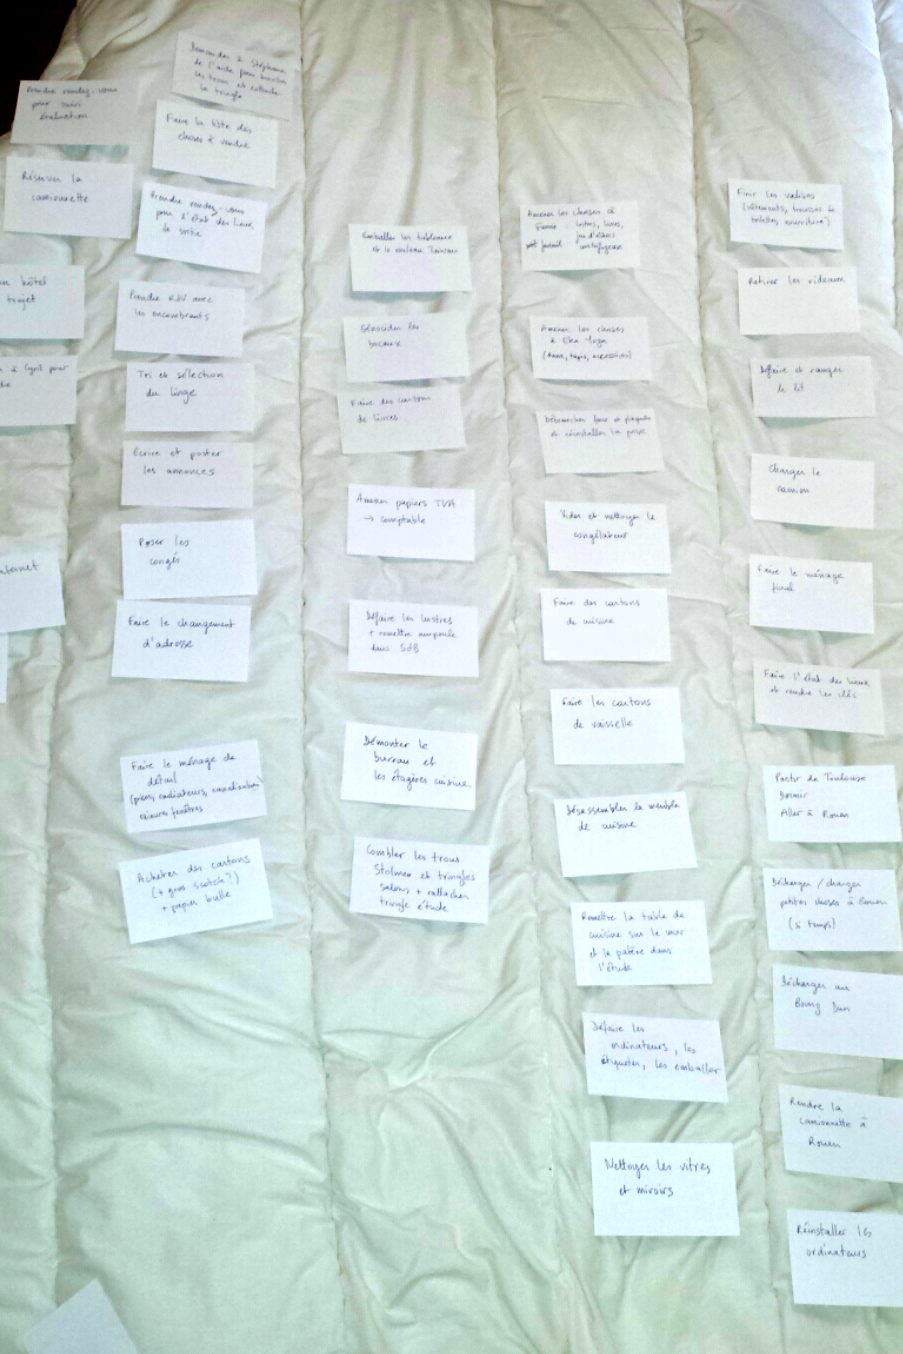 Prendre rendez-vous
pour suivi
évaluation
Réserver la
camionnette
un hôtel
trajet
à Cyril pour
internet
Demander à Stéphane
de l'aide pour boucher
les trous et
la tringle
Faire la liste des
choses à vendre
Prendre rendez-vous
pour l'état des lieux
de sortie
Prendre RDV avec
les encombrants
Tri et sélection
du linge
Écrire et poster
les annonces
Poser les
congés
Faire le changement
d'adresse
Faire le ménage de
détail
(radiateurs, canalisation,
rainures fenêtres
Acheter des cartons
(+ gros scotch?)
+ papier bulle
Emballer les tableaux
et le rouleau
Génocider les
bocaux
Faire des cartons
de livres
Amener papiers TVA
→ comptable
Défaire les lustres
+ remettre ampoule
dans SdB
Démonter le
bureau et
les étagères cuisine
Combler les trous
Stolmen et tringles
salons + rattacher
tringle étude
Amener les choses à
lustres, livres,
jeu d'échecs
centrifugeuse
Amener les choses
à Yoga
tapis, accessoires)
Débrancher four et plaques
et réinstaller la prise
Vider et nettoyer le
congélateur
Faire des cartons
de cuisine
Faire les cartons
de vaisselle
Désassembler le meuble
de cuisine
Remettre la table de
cuisine sur le mur
et la patère dans
l'étude
Défaire les
ordinateurs, les
étiqueter, les emballer
Nettoyer les vitres
et miroirs
Finir les valises
(vêtements, trousses de
toilettes, nourriture)
Retirer les rideaux
Défaire et ranger
le lit
Charger le
camion
Faire le ménage
final
Faire l'état des lieux
et rendre les clés
Partir de Toulouse
Dormir
Aller à Rouen
Décharger / charger
petites choses à Rouen
(si temps)
Décharger au
Rendre la
camionnette à
Rouen
Réinstaller les
ordinateurs